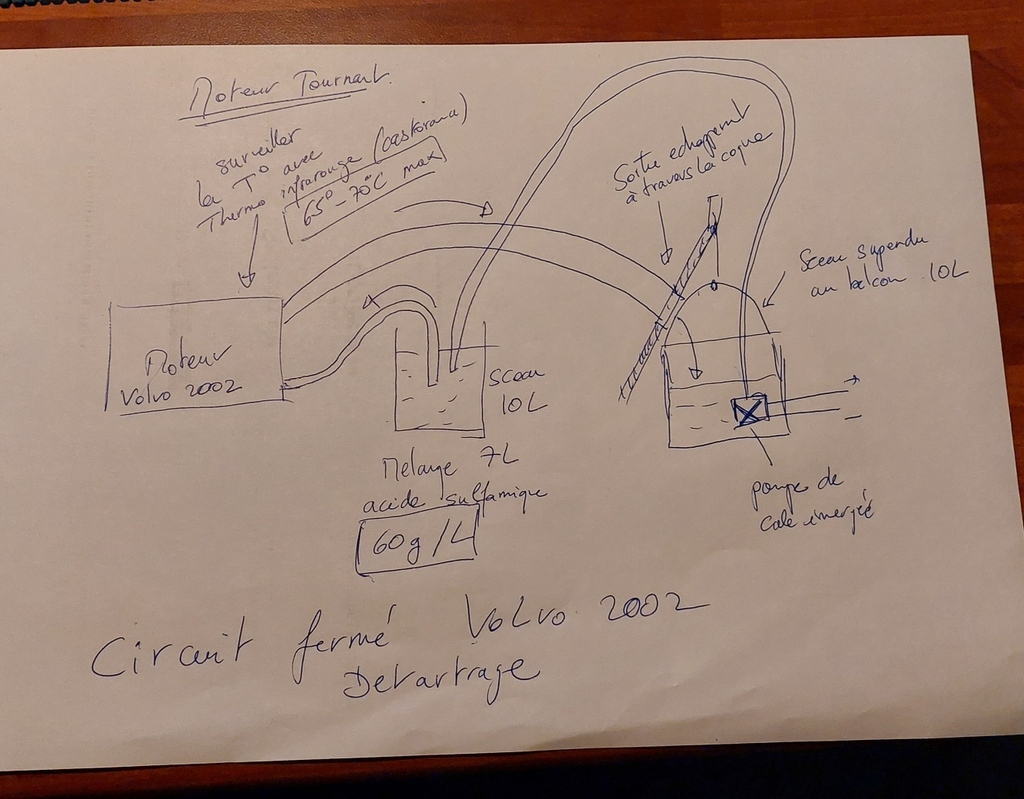 Moteur Tournant.
surveiller
la T° avec
Thermo infrarouge (castorama)
65° - 70°C max
Sortie echappemt
à travers la coque
Sceau supendu
au balcon 10L
Moteur
Volvo 2002
Sceau
10L
Melange 7L
acide sulfamique
60g/L
+
-
pompe de
cale imergée
Circuit fermé Volvo 2002
Detartrage